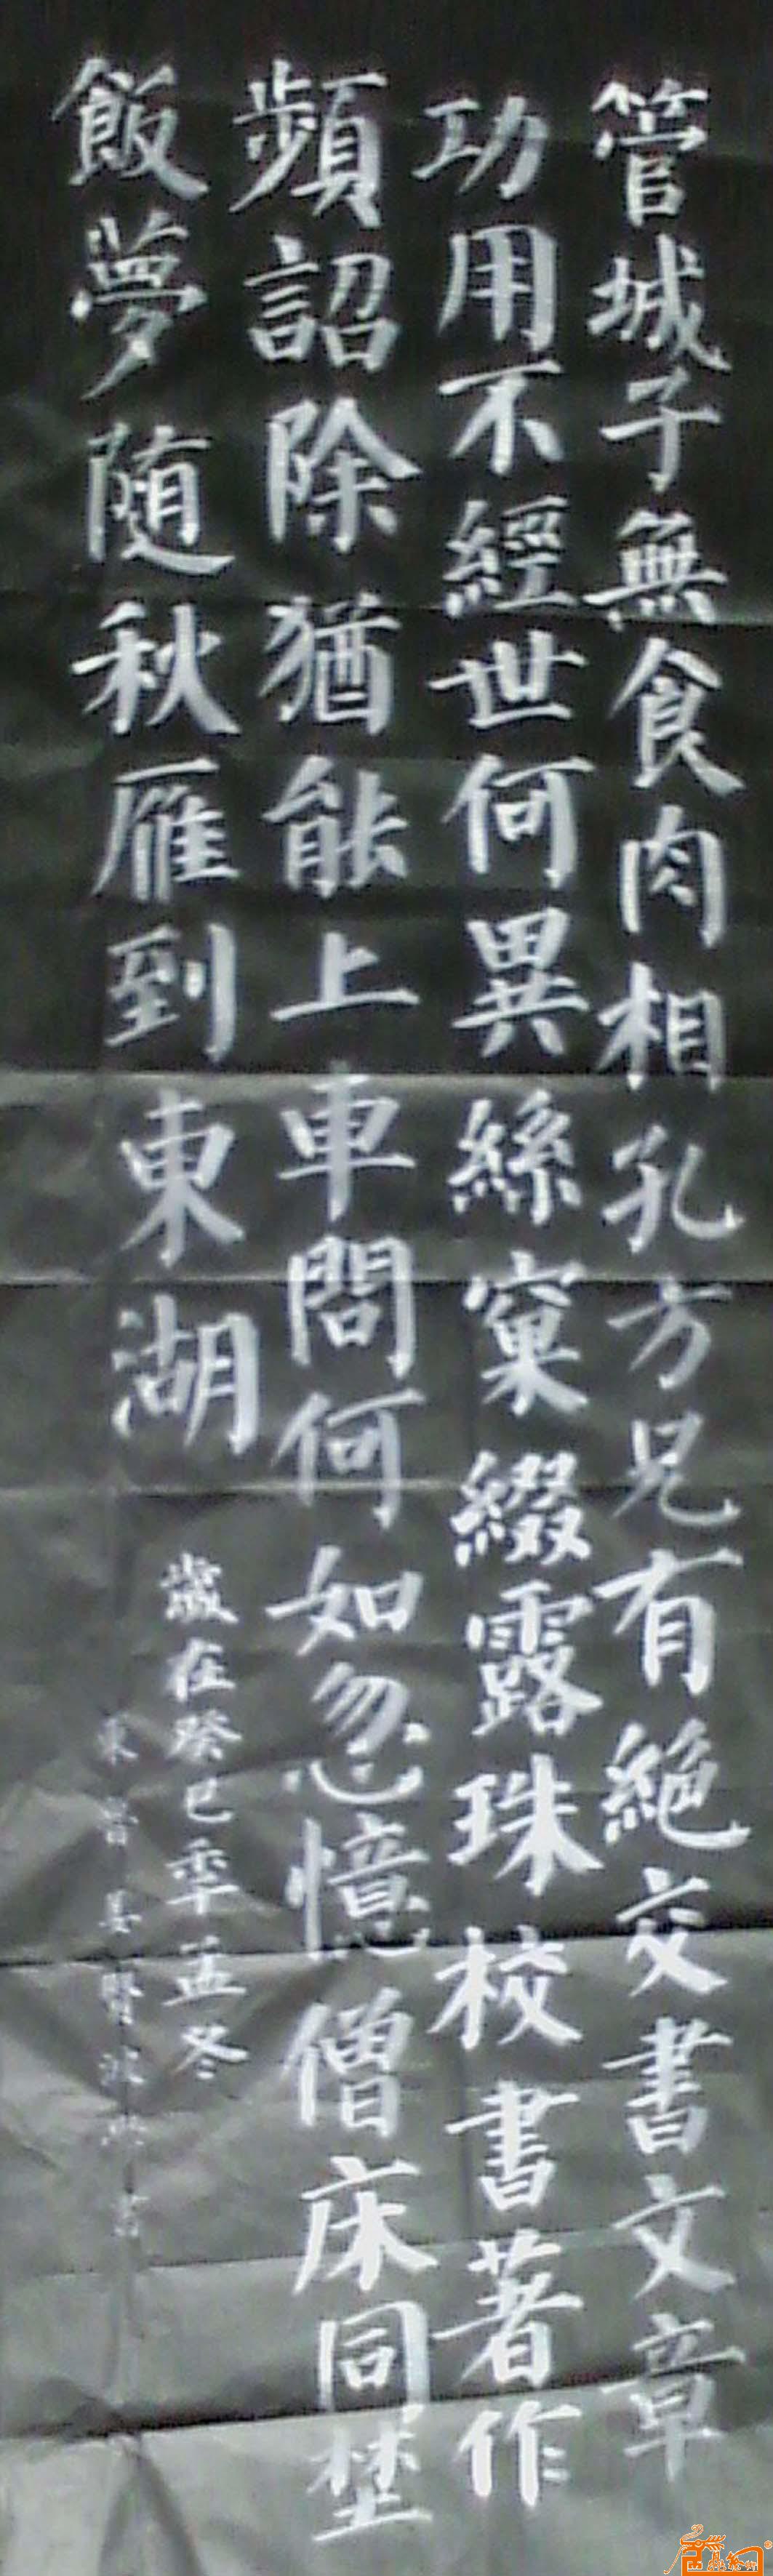 管城子無食肉相孔方兄有絕交書文章
功用不經世何異絲窠綴露珠校書著作
頻詔除猶能上車問何如忽憶僧床同埜
飯夢随秋雁到東湖
歲在癸巳年孟冬
東晋